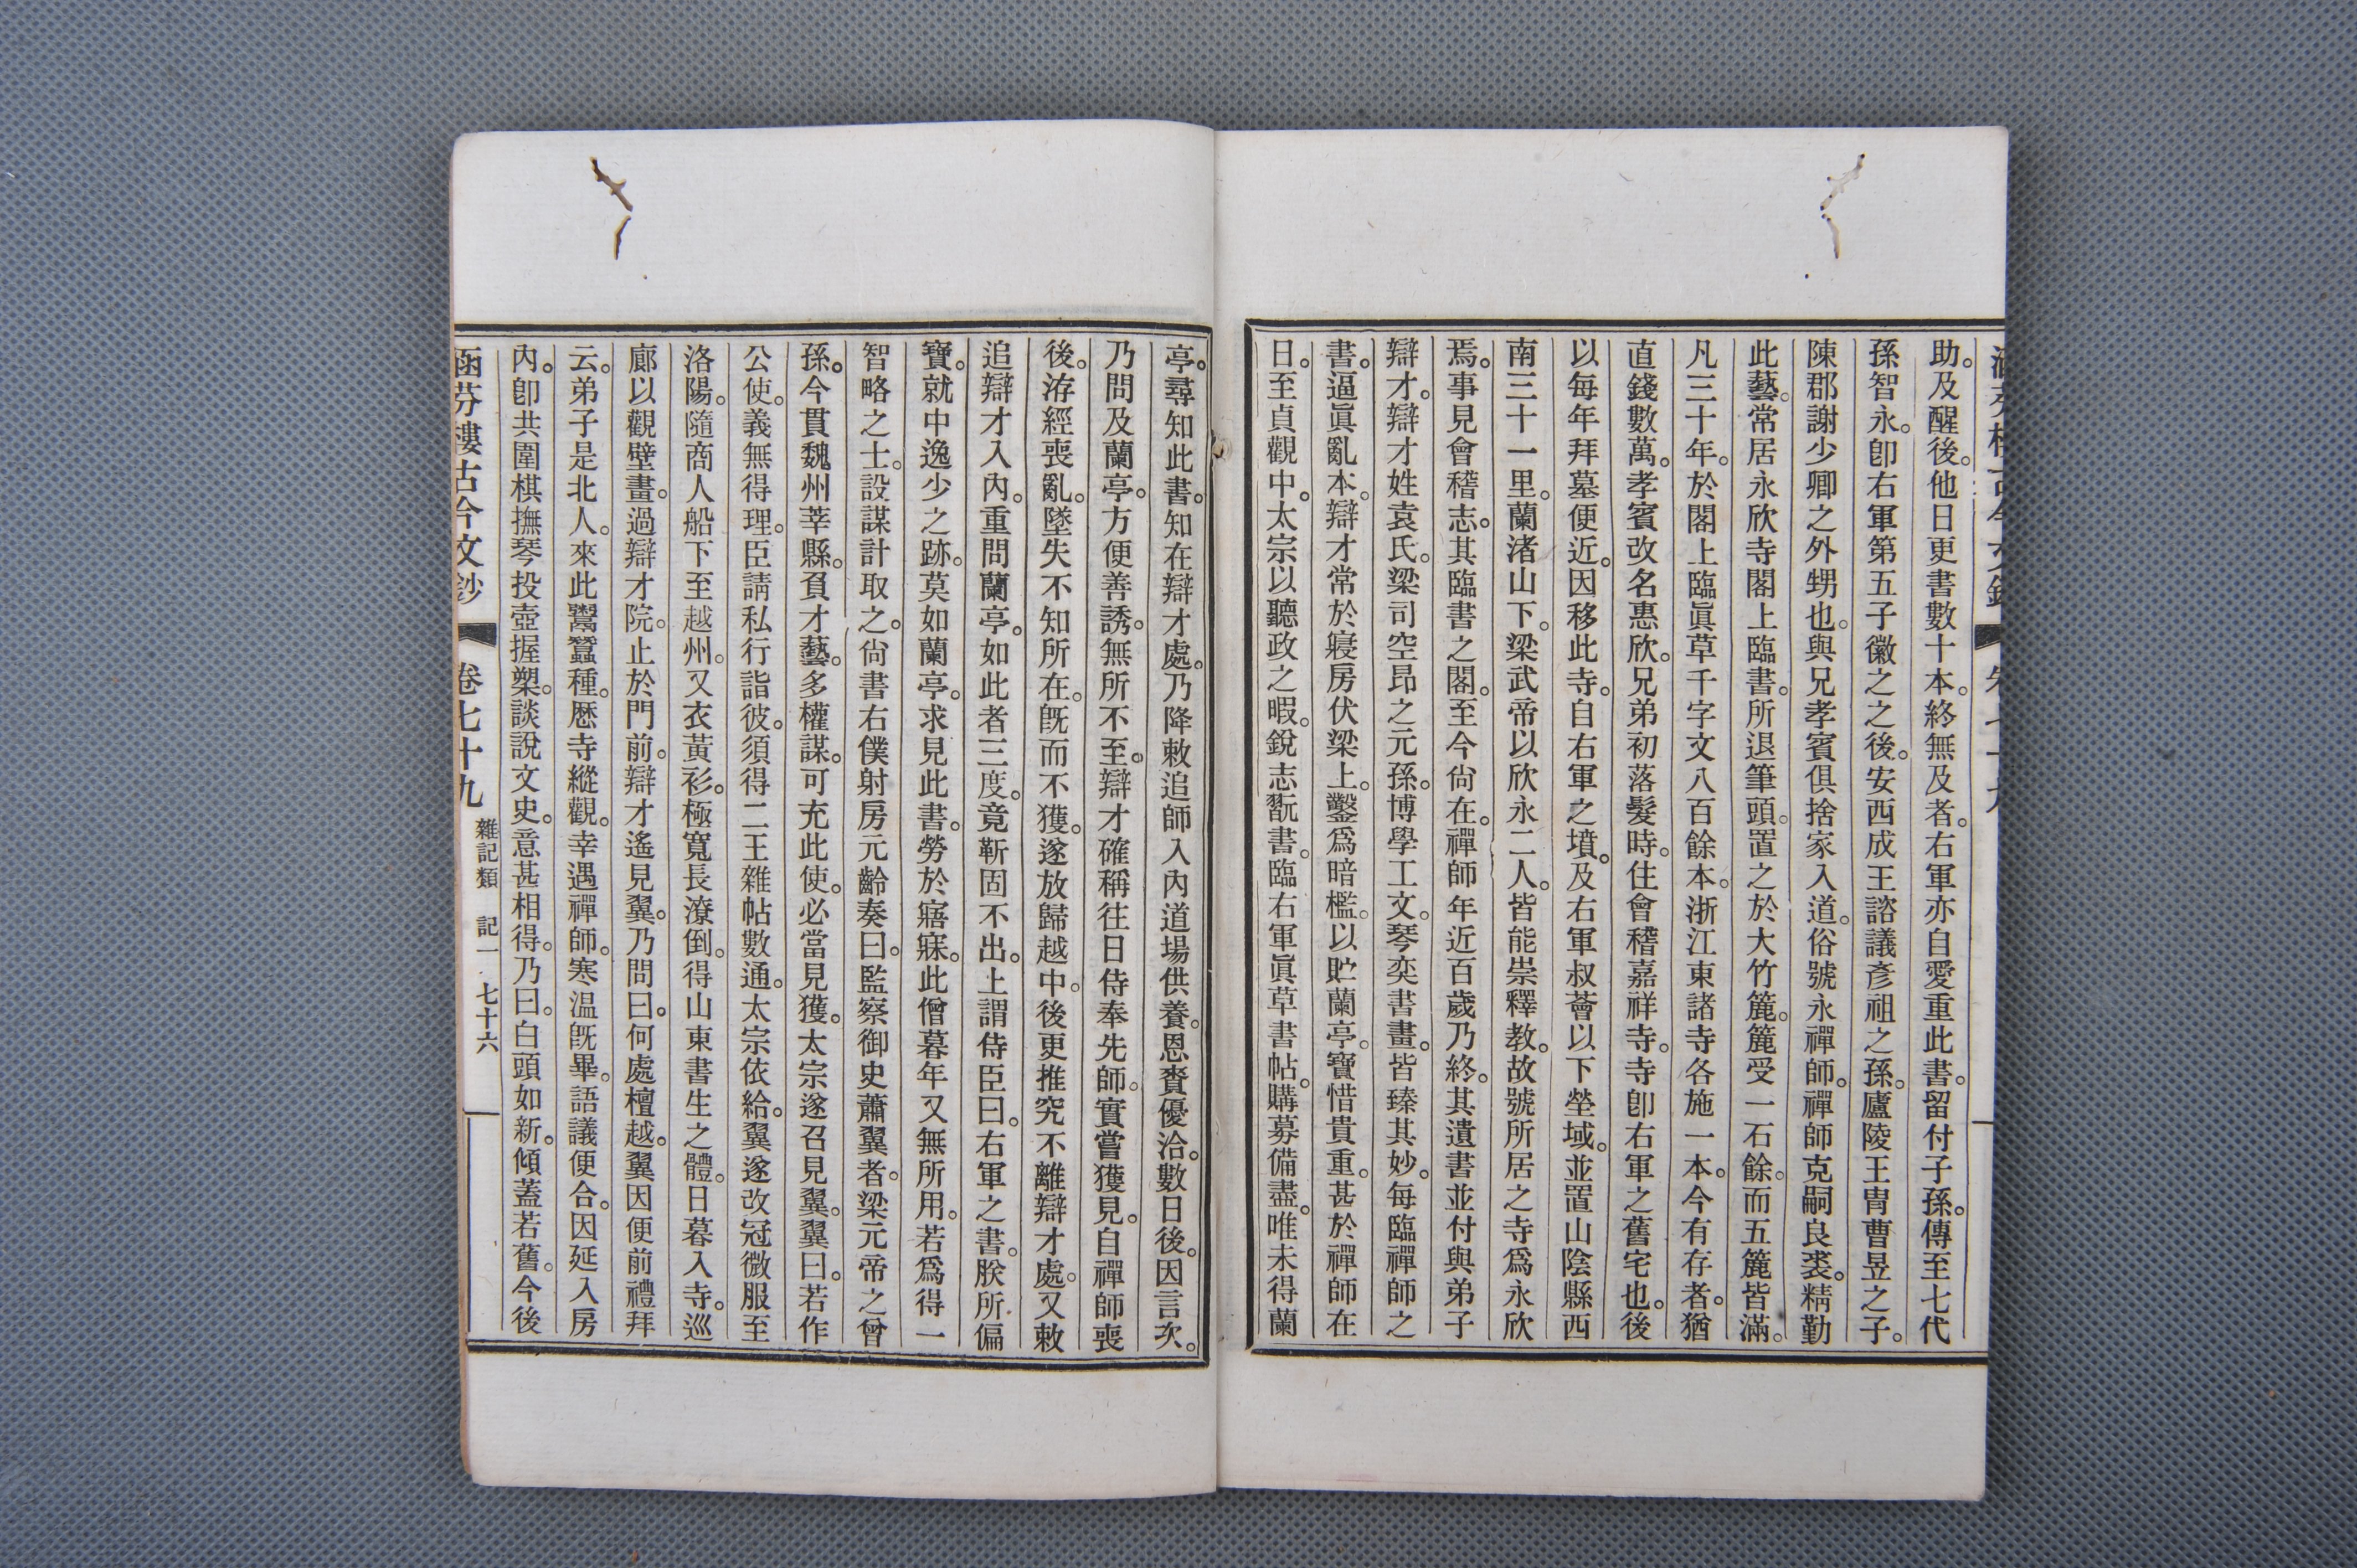 助。及醒後。他日更書數十本。終無及者。右軍亦自愛重此書。留付子孫。傳至七代
孫智永。卽右軍第五子徽之之後。安西成王諮議彥祖之孫。廬陵王冑曹昱之子。
陳郡謝少卿之外甥也。與兄孝賓俱捨家入道。俗號永禪師。禪師克嗣良裘。精勤
此藝。常居永欣寺閣上臨書。所退筆頭。置之於大竹簏。簏受一石餘。而五簏皆滿。
凡三十年。於閣上臨眞草千字文八百餘本。浙江東諸寺各施一本。今有存者。猶
直錢數萬。孝賓改名惠欣。兄弟初落髮時。住會稽嘉祥寺。寺卽右軍之舊宅也。後
以每年拜墓便近。因移此寺。自右軍之墳。及右軍叔薈以下塋域。並置山陰縣西
南三十一里。蘭渚山下。梁武帝以欣永二人。皆能崇釋教。故號所居之寺爲永欣
焉。事見會稽志。其臨書之閣。至今尙在。禪師年近百歲乃終。其遺書並付與弟子
辯才。辯才姓袁氏。梁司空昂之元孫。博學工文。琴奕書畫。皆臻其妙。每臨禪師之
書。逼眞亂本。辯才常於寢房伏梁上。鑿爲暗檻。以貯蘭亭。寶惜貴重。甚於禪師在
日。至貞觀中。太宗以聽政之暇。銳志翫書。臨右軍眞草書帖。購募備盡。唯未得蘭
亭。尋知此書。知在辯才處。乃降敕追師入內道場供養。恩賚優洽。數日後。因言次。
乃問及蘭亭。方便善誘。無所不至。辯才確稱往日侍奉先師。實嘗獲見。自禪師喪
後。洊經喪亂。墜失不知所在。旣而不獲。遂放歸越中。後更推究不離辯才處。又敕
追辯才入內。重問蘭亭。如此者三度。竟靳固不出。上謂侍臣曰。右軍之書。朕所偏
寶。就中逸少之跡。莫如蘭亭。求見此書。勞於寤寐。此僧暮年又無所用。若爲得一
智略之士。設謀計取之。尙書右僕射房元齡奏曰。監察御史蕭翼者。梁元帝之曾
孫。今貫魏州莘縣。負才藝。多權謀。可充此使。必當見獲。太宗遂召見翼。翼曰。若作
公使。義無得理。臣請私行詣彼。須得二王雜帖數通。太宗依給。翼遂改冠微服至
洛陽。隨商人船下至越州。又衣黃衫。極寬長潦倒。得山東書生之體。日暮入寺。巡
廊以觀壁畫。過辯才院。止於門前。辯才遙見翼。乃問曰。何處檀越。翼因便前禮拜
云。弟子是北人。來此鬻蠶種。歷寺縱觀。幸遇禪師。寒溫旣畢。語議便合。因延入房
內。卽共圍棋撫琴投壺握槊。談說文史。意甚相得。乃曰。白頭如新。傾蓋若舊。今後
函芬樓古今文鈔 卷七十九 雜記類 記一 七十六